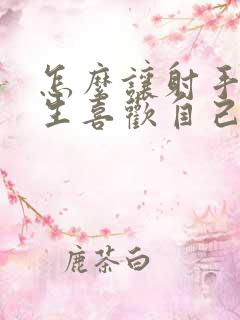 怎麼讓射手
生喜歡自己
鹿茶白